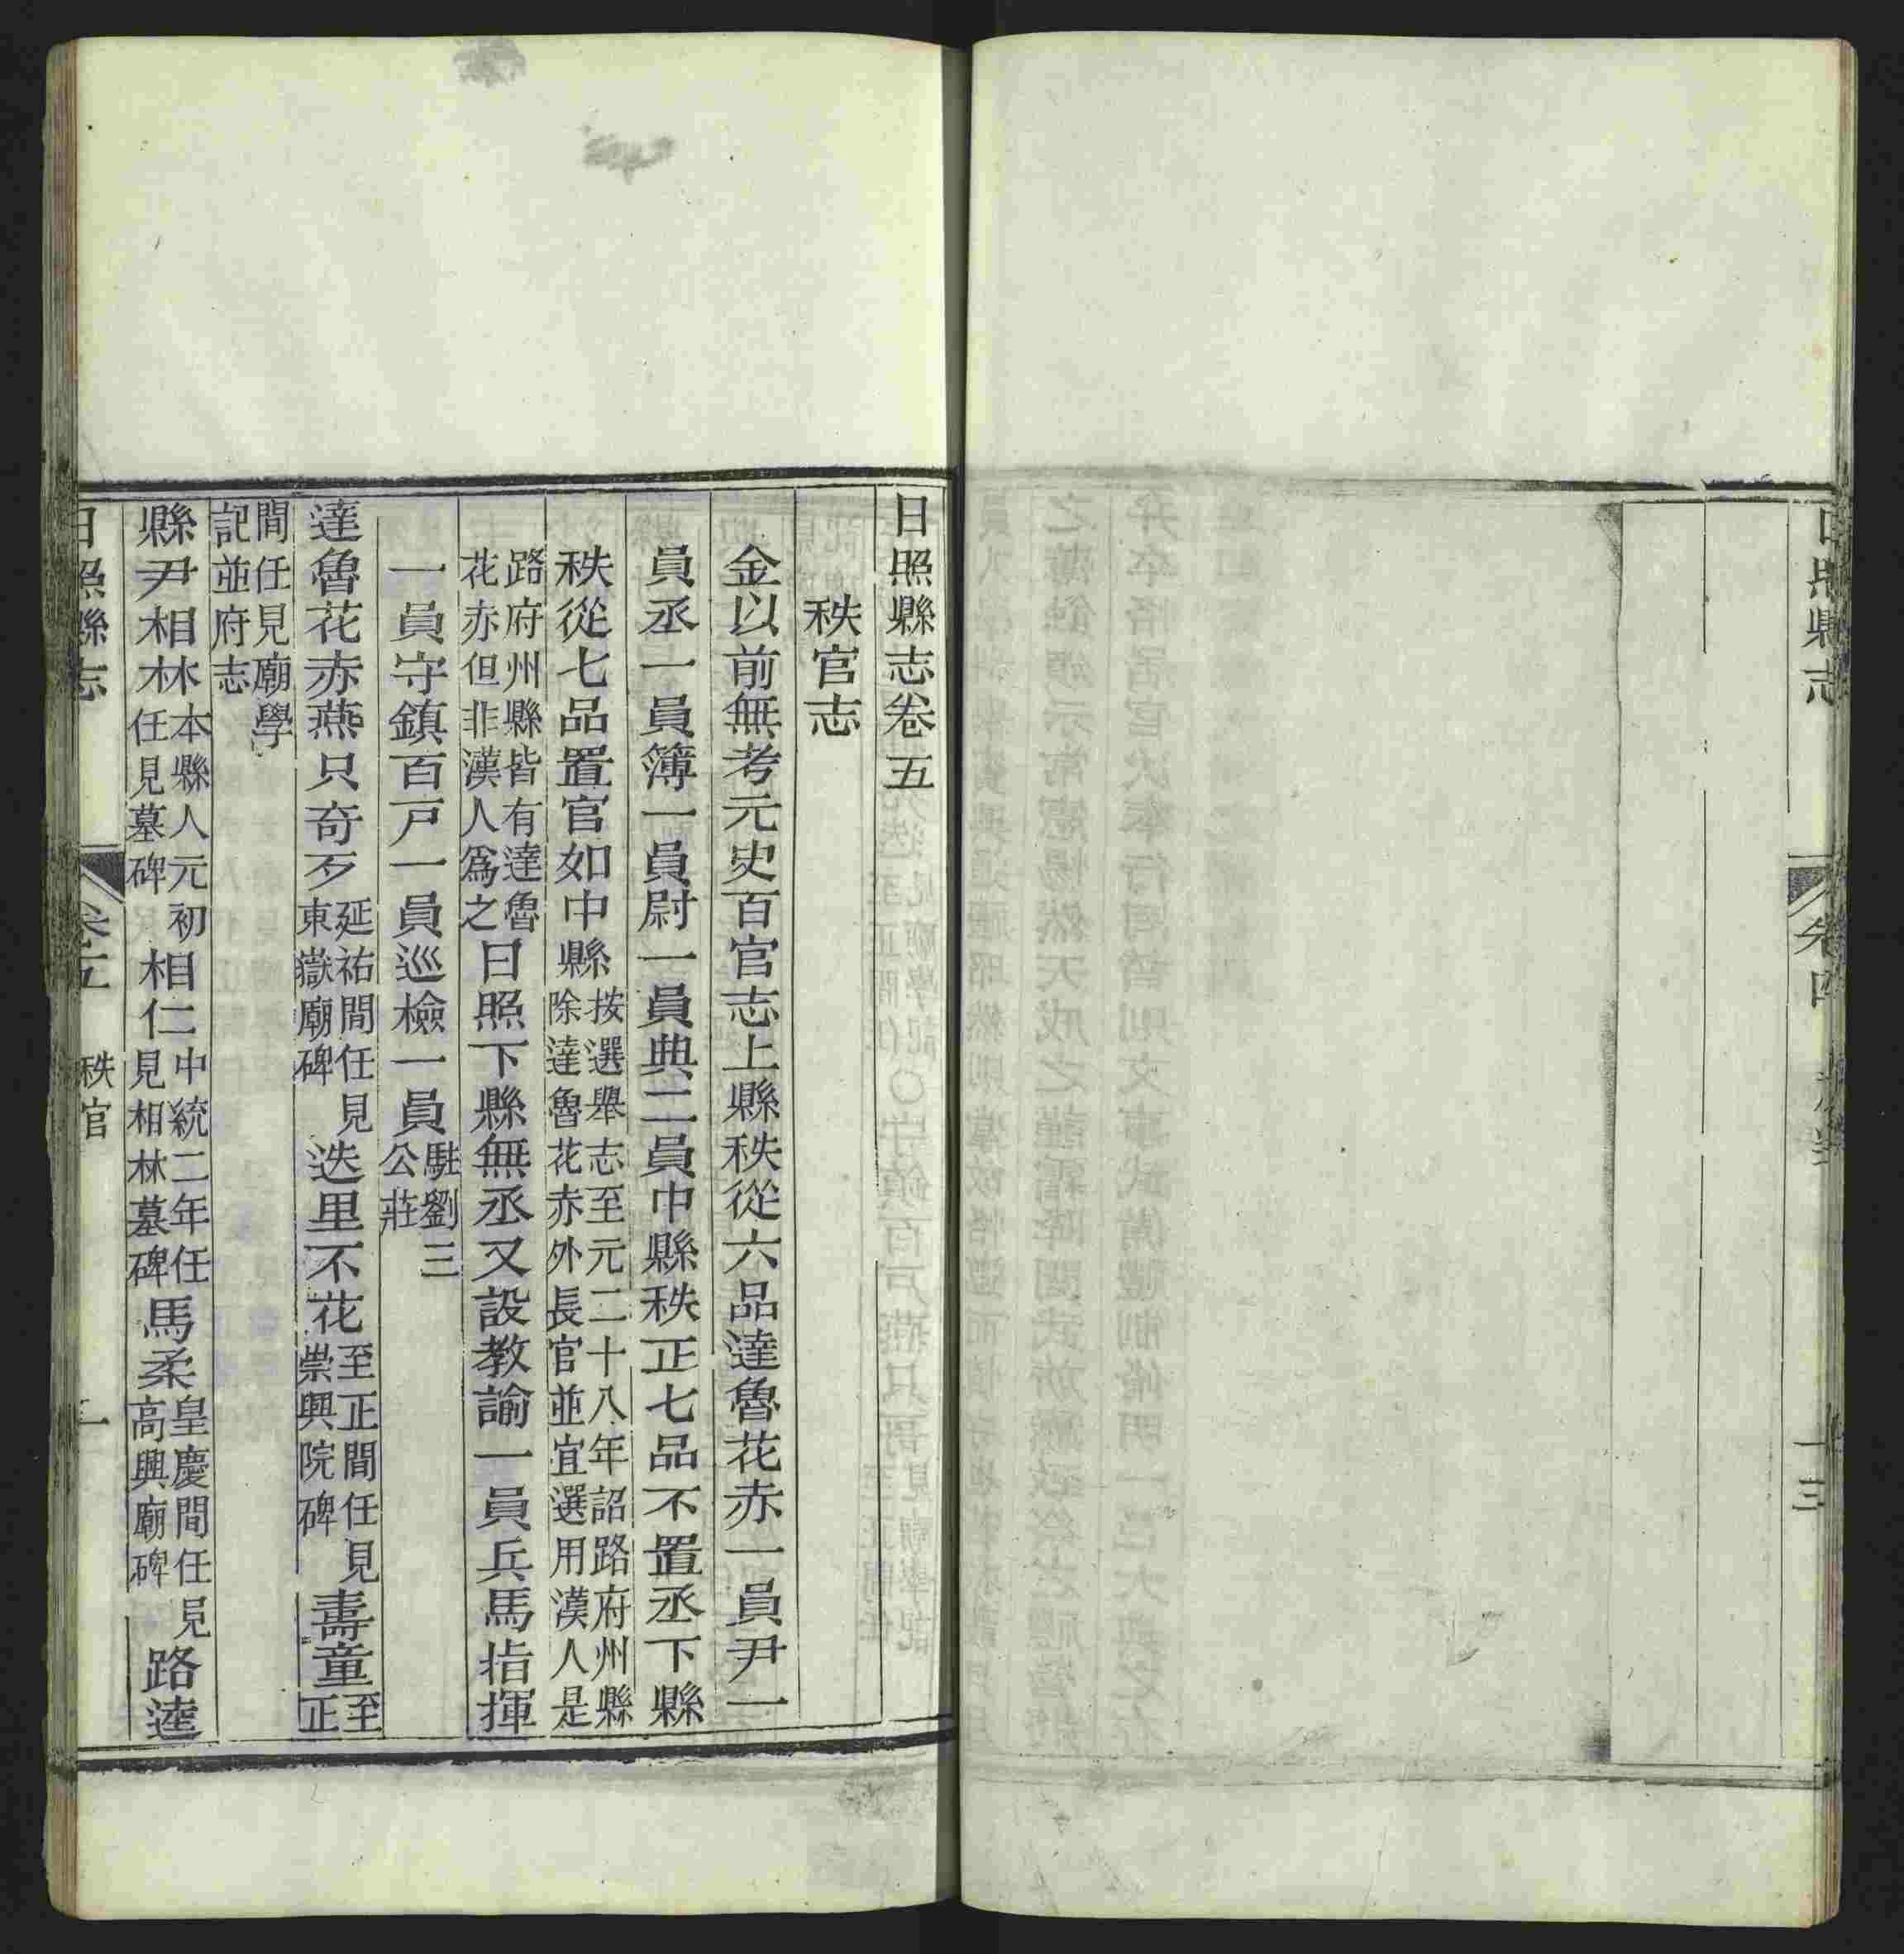 日照縣志
卷四
十三
日照縣志卷五
秩官志
金以前無考元史百官志上縣秩從六品達魯花赤一員尹一
員丞一員簿一員尉一員典二員中縣秩正七品不置丞下縣
秩從七品置官如中縣按選舉志至元二十八年詔路府州縣除達魯花赤外長官並宜選用漢人是
路府州縣皆有達魯花赤但非漢人爲之日照下縣無丞又設教諭一員兵馬指揮
一員守鎮百戸一員巡檢一員駐劉三公莊
達魯花赤燕只奇歹延祐間任見東嶽廟碑迭里不花至正間任見崇興院碑壽童至正
間任見廟學記並府志
縣尹相林本縣人元初任見墓碑相仁中統二年任見相林墓碑馬柔皇慶間任見高興廟碑路達
日照縣志
卷五
秩官
一